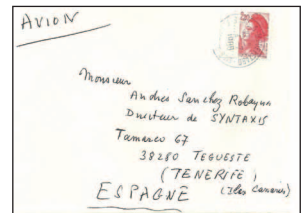 AVION
Monsieur
Andres Sanchez Robayna
Directeur de SYNTAXIS
Tamarco 67
38280 TEGUESTE
(TENERIFE)
(Iles Canaries)
ESPAGNE